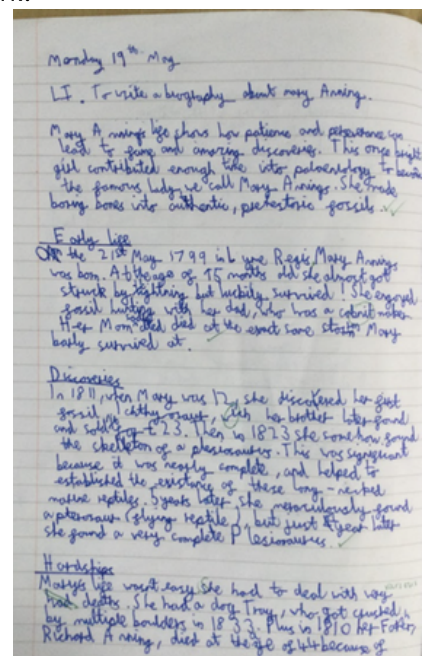 Monday 19th May
LI. To write a biography about mary Anning.
Mary Annings life shows how patience and perseverance can
lead to fame and amazing discoveries. This once bright
girl contributed enough time into palaeontology to become
the famous lady we call Mary Annings. She made
boring bones into authentic, prehistoric fossils.
Early life
On the 21st May 1799 in Lyme Regis, Mary Annings
was born. At the age of 15 months old she almost got
struck by lightning but luckily survived. She enjoyed
fossil hunting with her dad, who was a cabinet maker
Her Mom died at the exact same storm Mary
barly survived at.
Discoveries
In 1811, when Mary was 12, she discovered her first
fossil, her brother later found
and sold for £23. Then in 1823 she somehow found
the skeleton of a plesiosaurus. This was significant
because it was nearly complete, and helped to
established the existence of these long-necked
marine reptiles. 5 years later, she miraculously found
a pterosaur (flying reptile), but just 1 year later
she found a very complete Plesiosaurus.
Hardships
Mary's life wasn't easy she had to deal with very
deaths. She had a dog Troy, who got crushed
by multiple boulders in 1833. Plus in 1810 her Father,
Richard Anning, died at the age of 44 because of